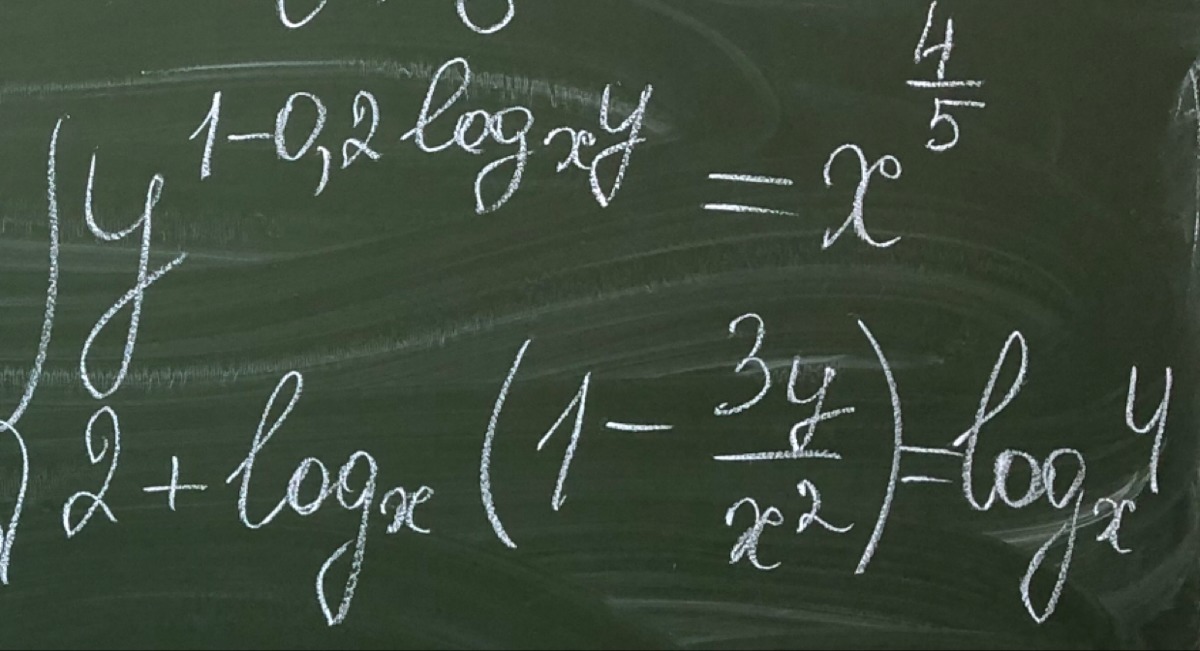 y^{1-0,2 log_x y} = x^{\frac{4}{5}}
2 + log_x (1 - \frac{3y}{x^2}) = log_x 4